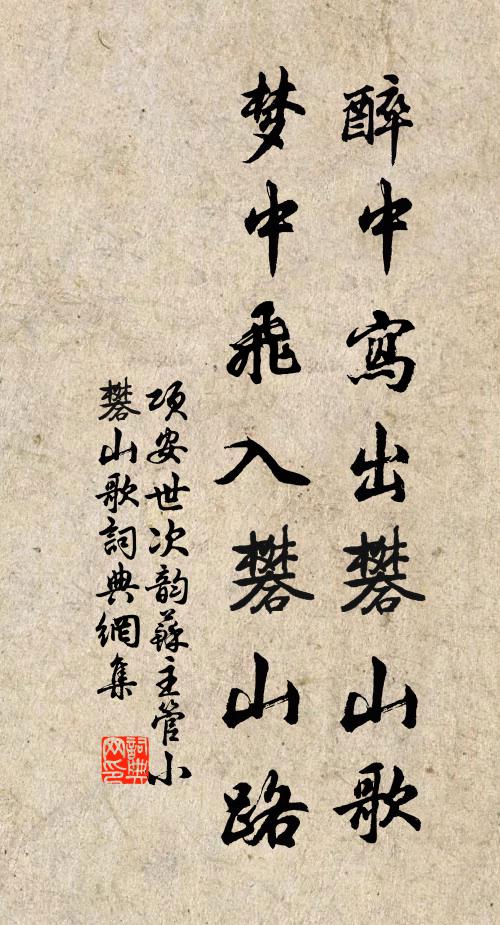 醉中寫出礬山歌
梦中飛入礬山路
項安世次韵蘇主管小
礬山歌詞典網集
詞典网印